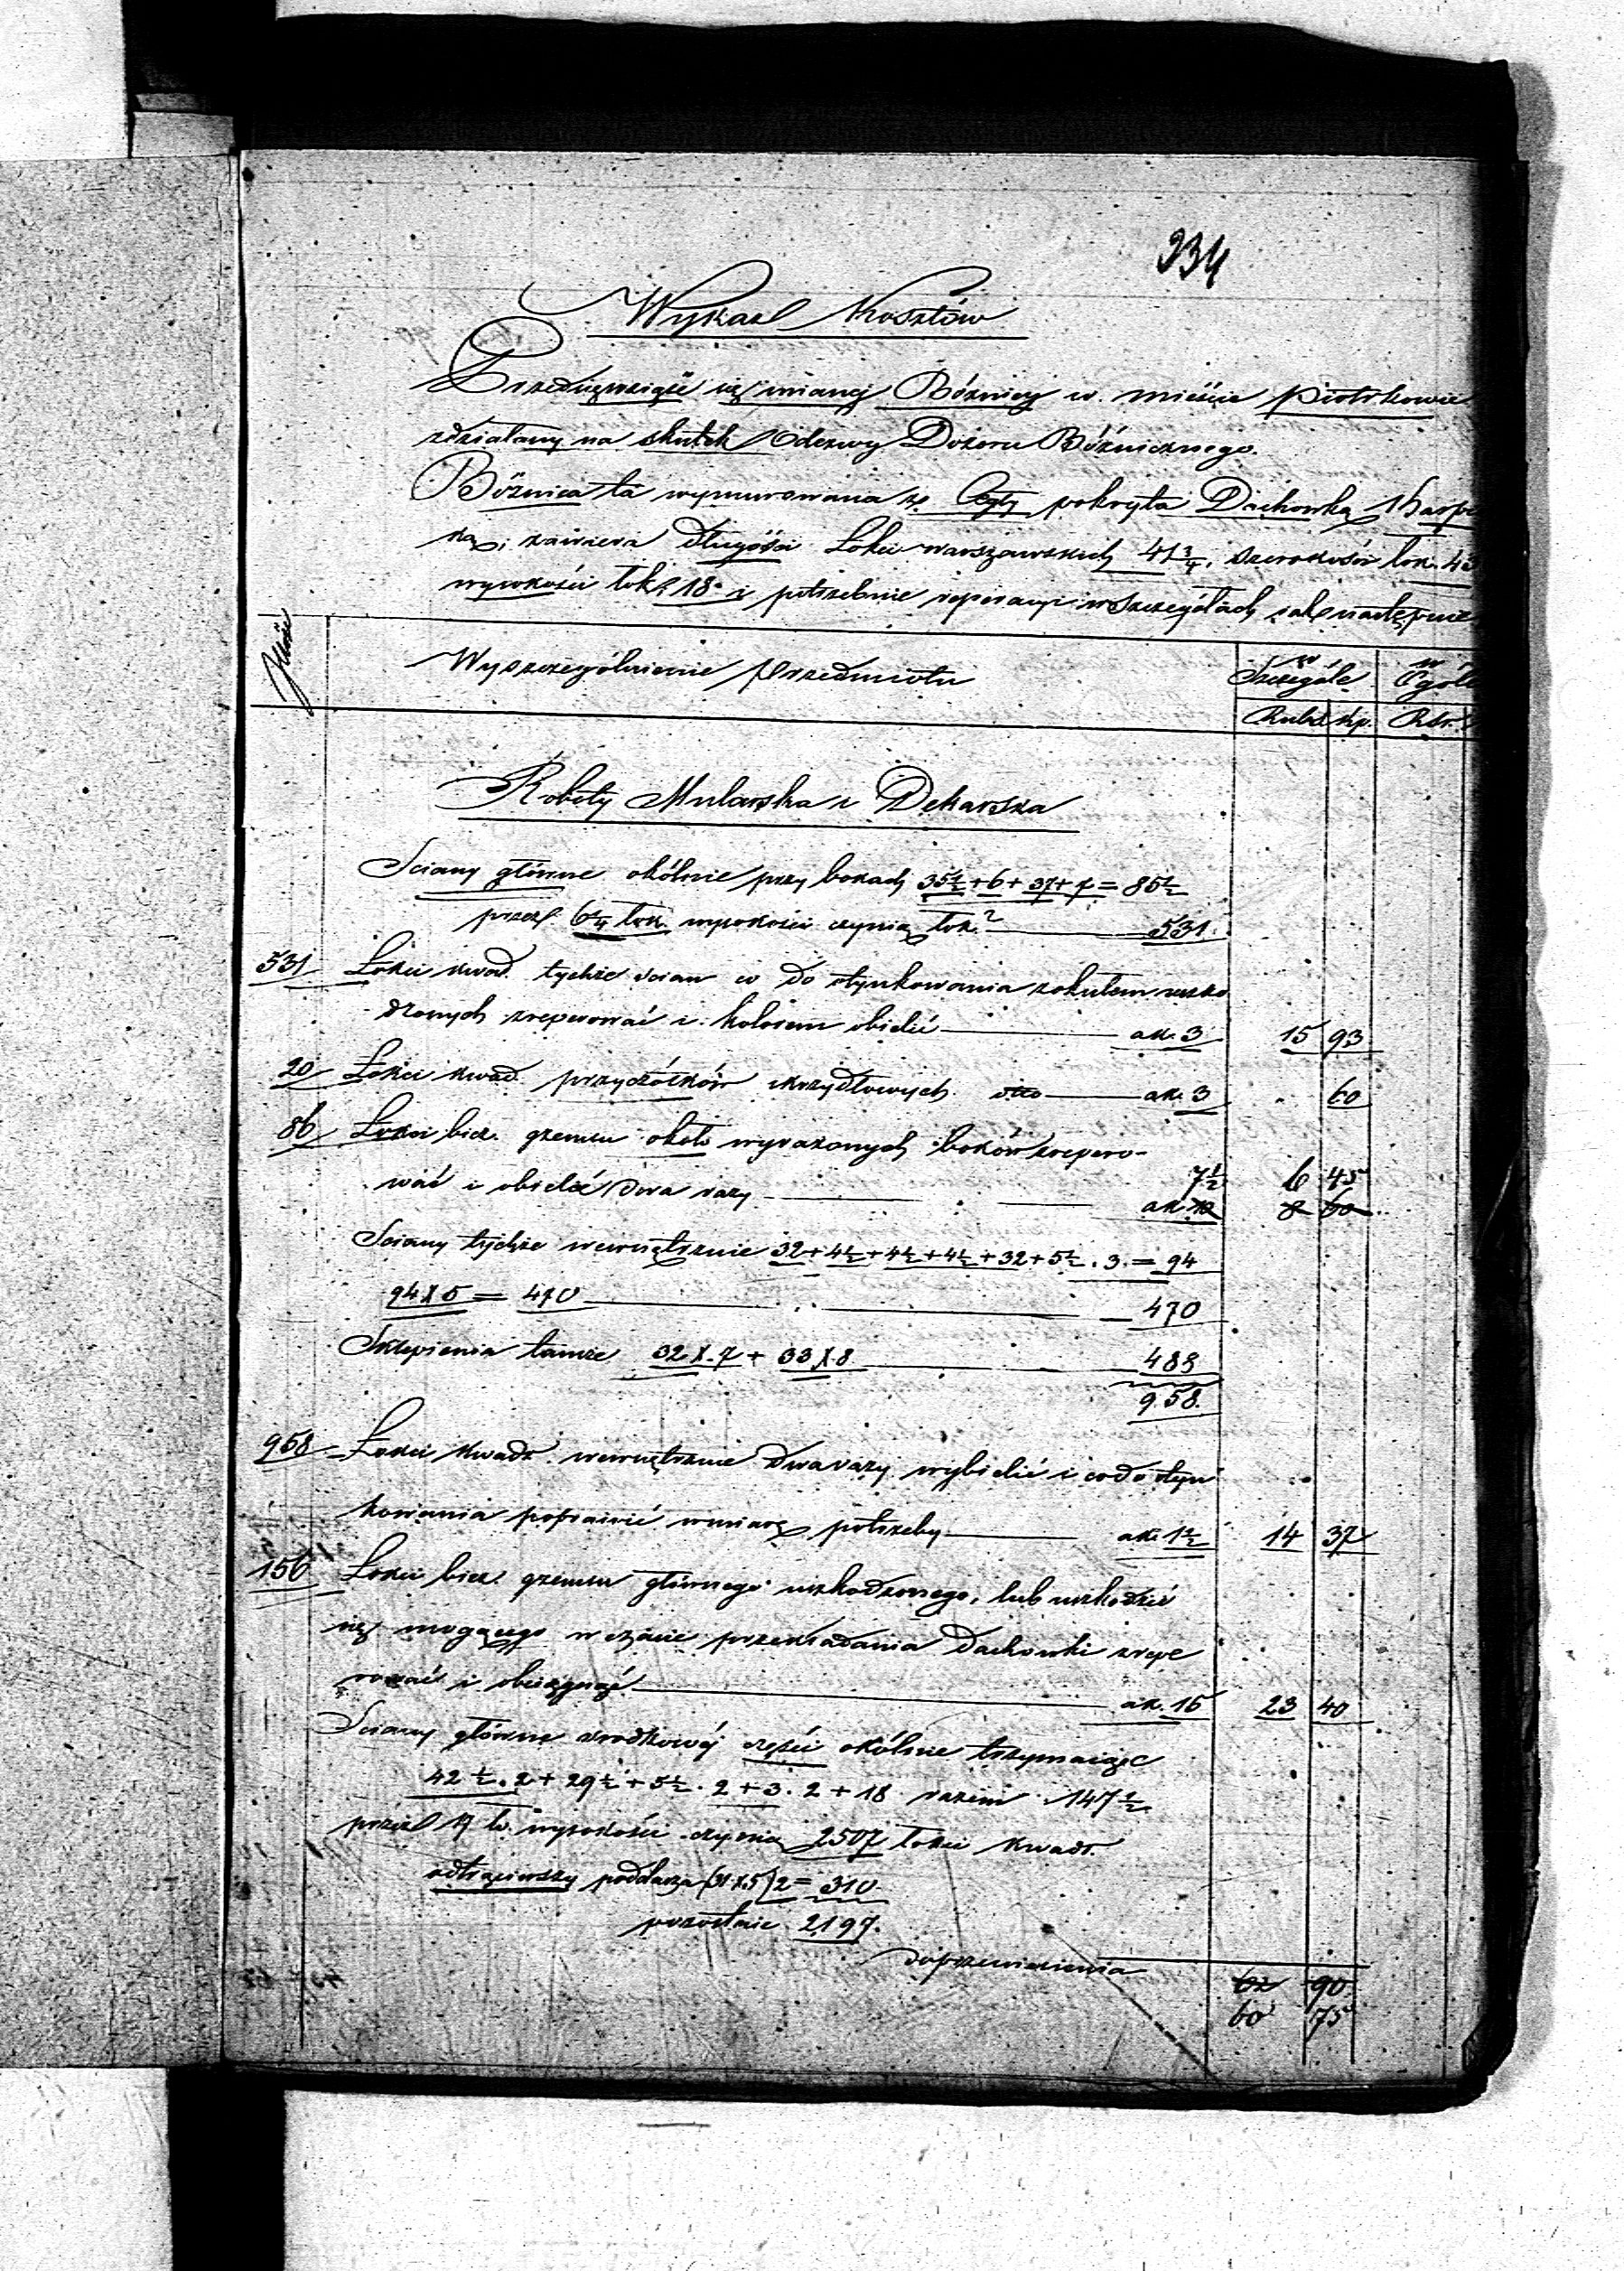 234
Wykaz Kosztów
Przedsięwziąść się mianej Bóźnicy w mieście Piotrkowie
zdziałany na skutek Odezwy Dozoru Bóźnicznego.
Bóżnica ta wymurowana z Cegły pokryta Dachówką Karpi
ką zawiera długości Łokci warszawskich 41 3/4, szerokości łok. 43
wysokości łok. 18 i potrzebuie reperacyi w szczegółach jak następuie
Ilość
Wyszczególnienie przedmiotu
w Szczególe
w Ogóle
Rubs. Kp.
Rsr.
Roboty Mularska i Dekarska
Sciany główne okólnie przy bokach 35 1/2 + 6 + 37 + 7 = 85 1/2
przez 6 1/4 łok. wysokości czynią łok.² 531.
531 Łokci kwad. tychże scian co do otynkowania zokulem uszko
dzonych zreperować i kolorem obielić ak. 3 15 93
20 Łokci kwad. przyczółków skrzydłowych dtto ak. 3 " 60
86 Łokci bież. gzemsu około wyrażonych boków zrepero-
wać i obielić dwa razy 7 1/2 6 45
ak. 10 8 60
Sciany tychże wewnętrznie 32 + 4 1/2 + 4 1/2 + 4 1/2 + 32 + 5 1/2 . 3. = 94
94 X 5 = 470 470
Sklepienia tamże 32 X 7 + 33 X 8 488
958.
958 Łokci kwadr. wewnętrznie dwa razy wybielić i co do otyn
kowania poprawić w miarę potrzeby ak. 1 1/2 14 37
156 Łokci bież. gzemsu głównego uszkodzonego, lub uszkodzić
się mogącego w czasie przekładania Dachówki zrepe
rować i obciągnąć ak. 15 23 40
Sciany główne srodkowéj części okólnie trzymaiące
42 1/2 . 2 + 29 1/2 + 5 1/2 . 2 + 3 . 2 + 18 razem 147 1/2
przez 17 ło. wysokości czynią 2507 łokci kwadr.
odtrąciwszy poddasza (31 X 5) 2 = 310
pozostaie 2197.
do przeniesienia 62 90
60 75